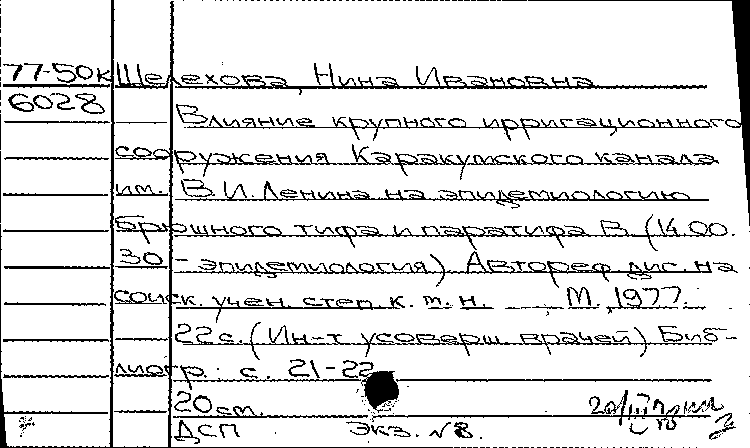 77-50к Шелехова, Нина Ивановна
6028
Влияние крупного ирригационного
сооружения Каракумского канала
им. В.И.Ленина на эпидемиологию
брюшного тифа и паратифа В. (14.00.
30 - эпидемиология) Автореф дис. на
соиск. учен. степ. к. м. н. М., 1977.
22с. (Ин-т усоверш. врачей) Биб-
лиогр.: с. 21-22
20 см.
ДСП Экз. №8.